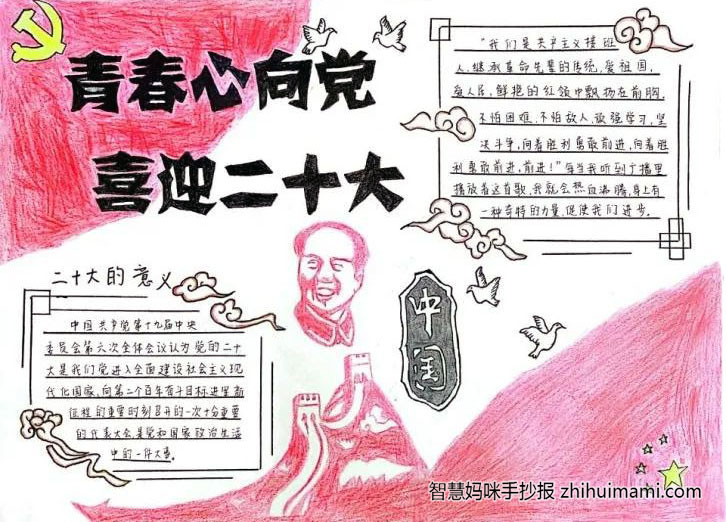 青春心向党
喜迎二十大
"我们是共产主义接班
人,继承革命先辈的传统,爱祖国,
爱人民,鲜艳的红领巾飘扬在前胸,
不怕困难、不怕敌人、顽强学习,坚
决斗争,向着胜利勇敢前进,向着胜
利勇敢前进,前进!"每当我听到广播里
播放着这首歌,我就会热血沸腾,身上有
一种奇特的力量,促使我们进步。
二十大的意义
中国共产党第十九届中央
委员会第六次全体会议认为党的二十
大是我们党进入全面建设社会主义现
代化国家,向第二个百年奋斗目标进军新
征程的重要时刻召开的一次十分重要
的代表大会,是党和国家政治生活
中的一件大事。
中国
智慧妈咪手抄报 zhihuimami.com